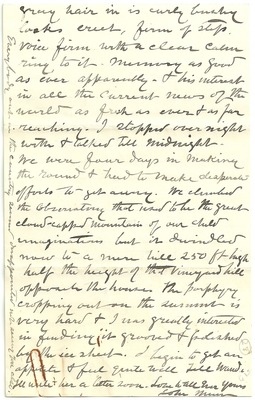 gray hair in is curly bushy
locks, erect, firm of step.
voice firm with a clear calm
ring to it. Memory as good
as ever apparently & his interest
in all the current news of the
world as fresh as ever & as far
reaching. I stopped over night
with & talked till midnight.
We were four days in making
the round & had to make desperate
efforts to get away. We climbed
the Observatory that used to be the great
cloud-capped mountain of our child
imaginations but it dwindled
now to a mere hill 250 ft high
half the height of that Vineyard hill
opposite the house. The porphyry
cropping out on the summit is
very hard & I was greatly interested
in finding it grooved & polished
by the ice sheet. I begin to get an
appetite & feel quite well. Tell Wanda
Ill write her a letter soon. Love to all Ever Yours
John Muir
Every body out in the country seems disappointed